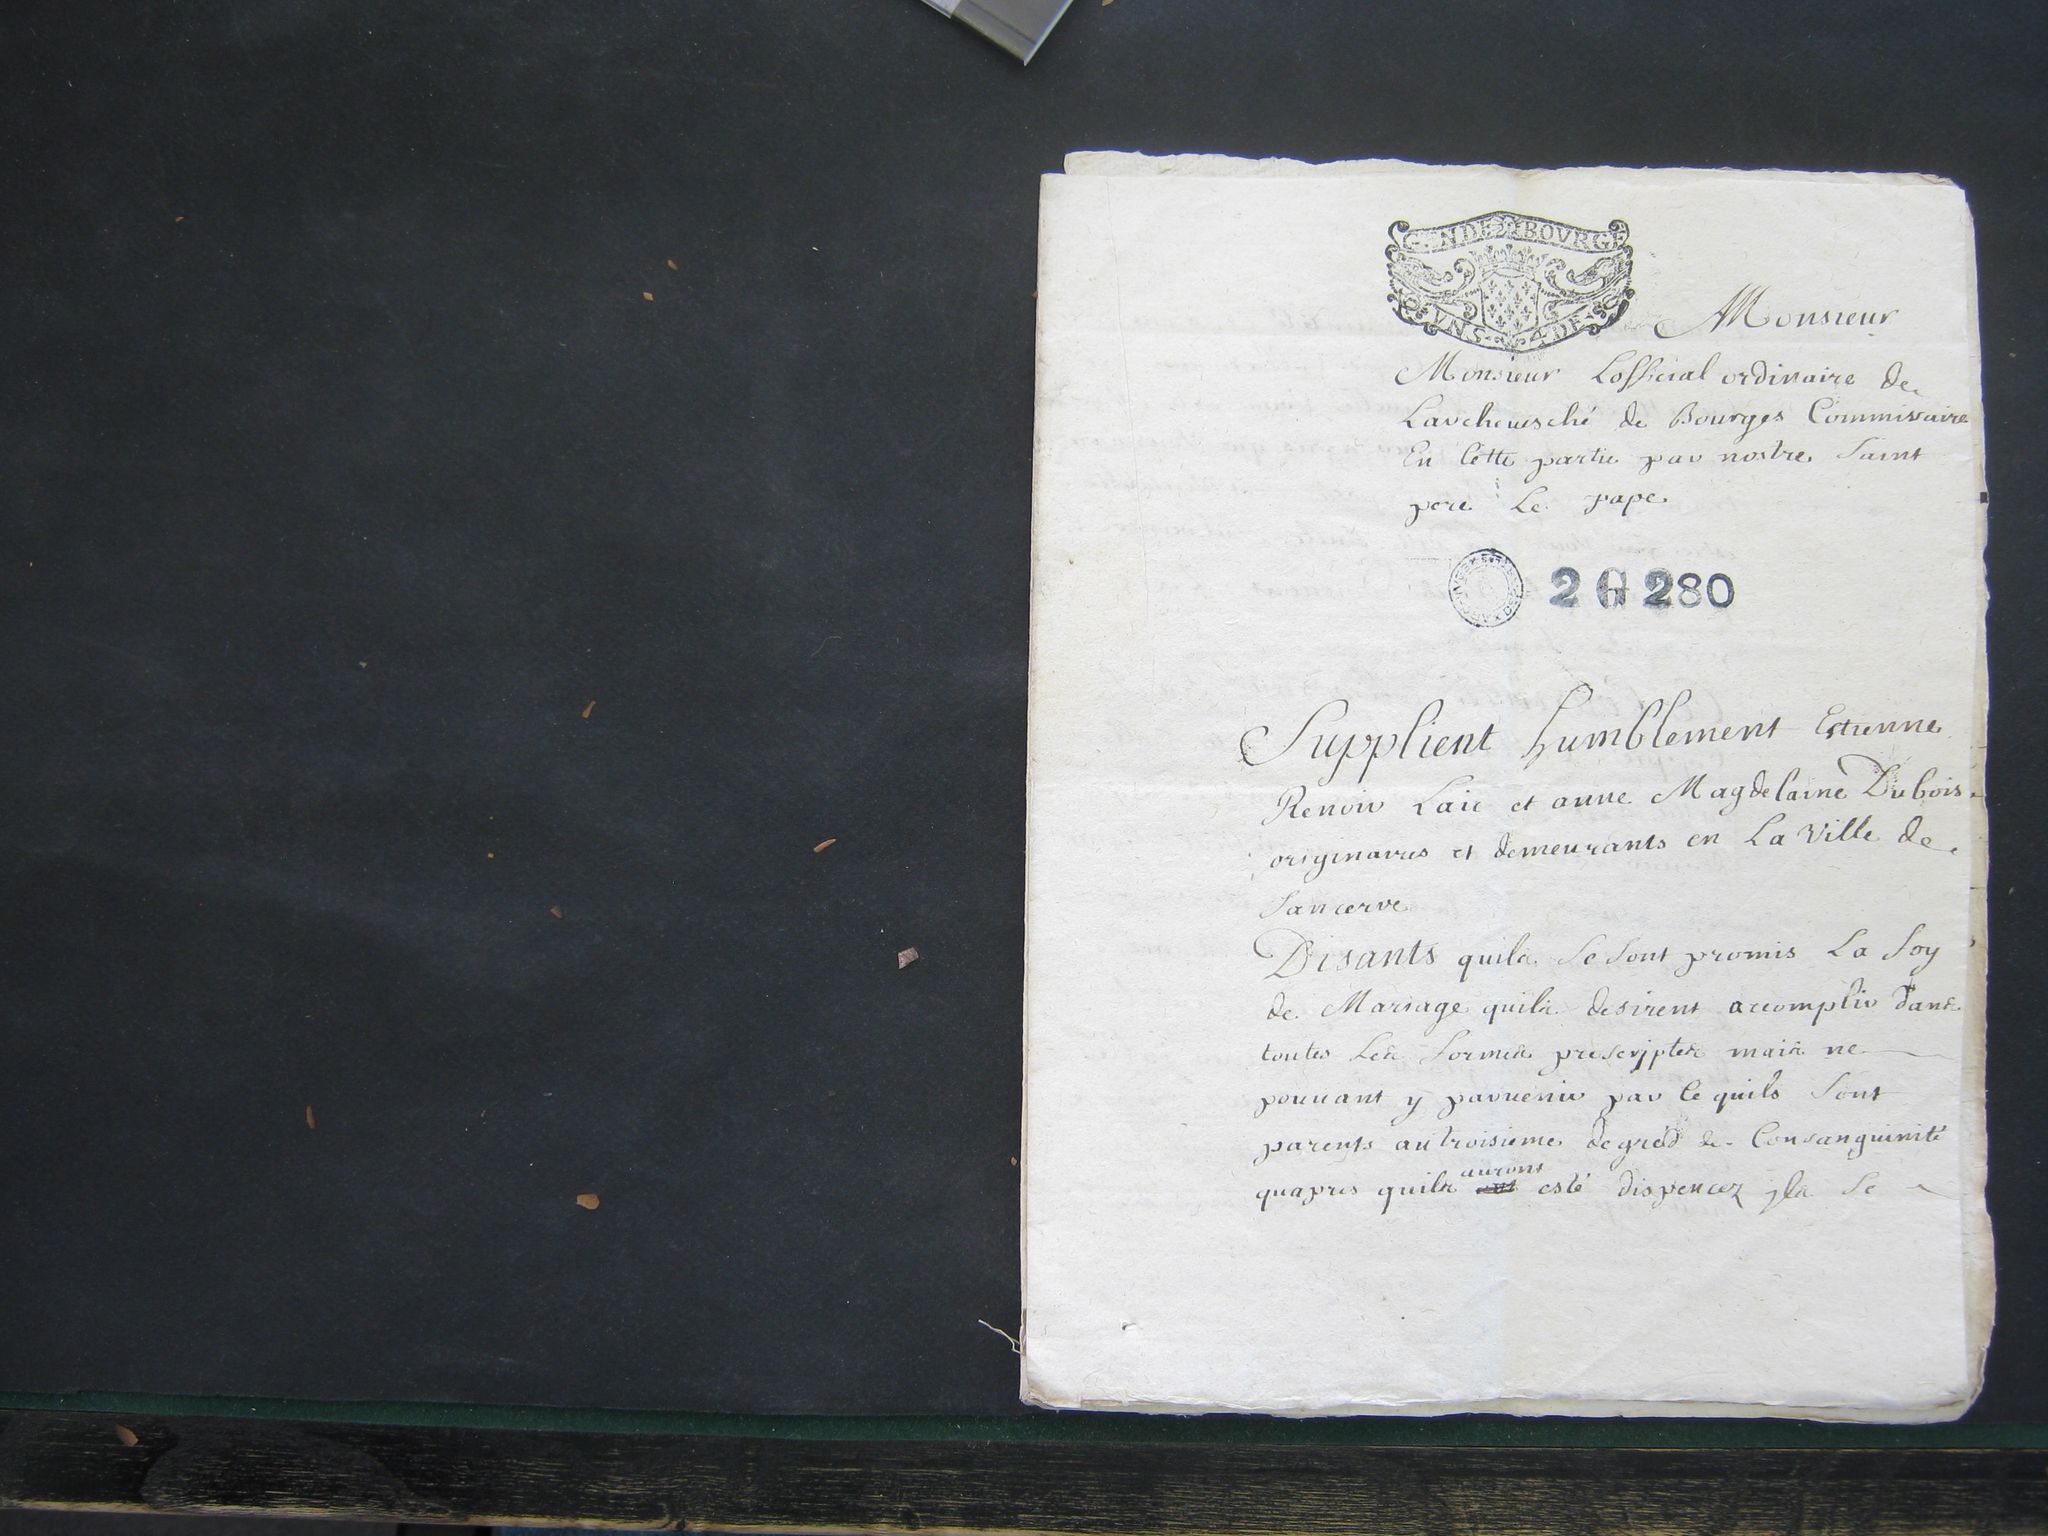 GEN DE BOVRGE
VNS 4 DE
A Monsieur
Monsieur Lofficial ordinaire de
Larcheuesché de Bourges Commissaire
En Cette partie par nostre Saint
pere Le pape
2 G 280
Supplient humblement Estienne
Renoir Laic et anne Magdelaine Dubois
originaires et demeurants en La Ville de
Sancerre
Disants quils se sont promis La foy
de Mariage quils desirent accomplir dans
toutes Les formes prescriptes mais ne
pouuant y paruenir par Ce quils sont
parents au troisieme degréd de Consanguinité
aurons
quapres quils esté dispencez ils Se